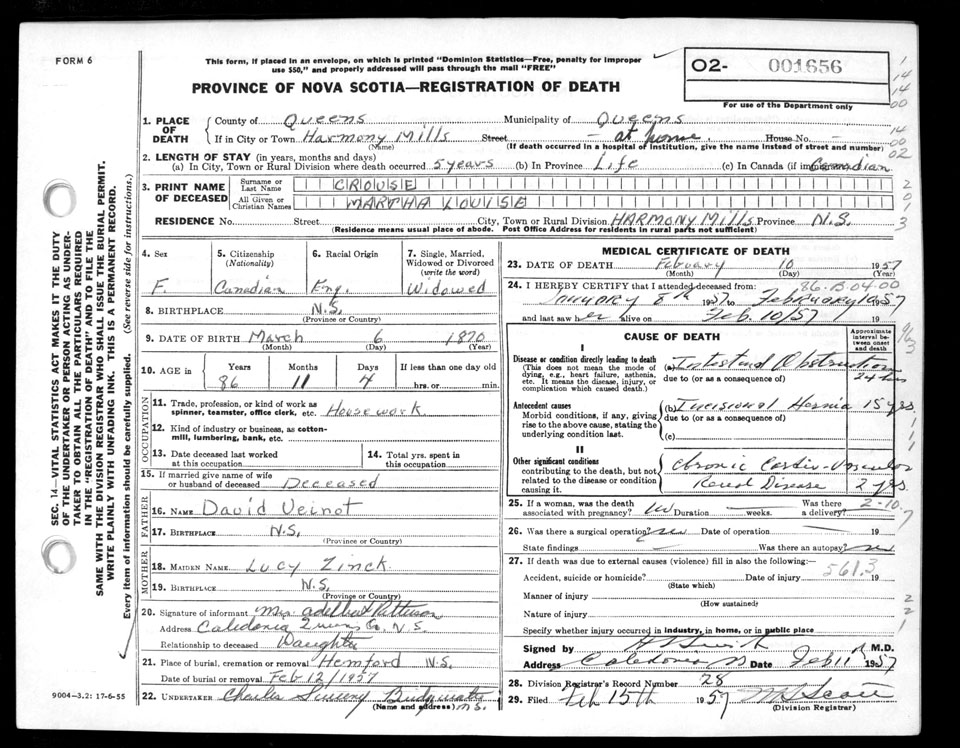 FORM 6
This form, if placed in an envelope, on which is printed "Dominion Statistics—Free, penalty for improper
use $50," and properly addressed will pass through the mail "FREE"
PROVINCE OF NOVA SCOTIA—REGISTRATION OF DEATH
O2- 001656
For use of the Department only
1. PLACE OF DEATH
County of Queens Municipality of Queens
If in City or Town Harmony Mills Street — at home. House No. —
(Name) (If death occurred in a hospital or institution, give the name instead of street and number)
2. LENGTH OF STAY (in years, months and days)
(a) In City, Town or Rural Division where death occurred 5 years (b) In Province Life (c) In Canada (if immigrant) Canadian
3. PRINT NAME OF DECEASED
Surname or Last Name CROUSE
All Given or Christian Names MARTHA LOUISE
RESIDENCE No. Street City, Town or Rural Division HARMONY Mills Province N.S.
(Residence means usual place of abode. Post Office Address for residents in rural parts not sufficient)
4. Sex F.
5. Citizenship (Nationality) Canadian
6. Racial Origin Eng.
7. Single, Married, Widowed or Divorced (write the word) Widowed
8. BIRTHPLACE N.S.
(Province or Country)
9. DATE OF BIRTH March 6 1870
(Month) (Day) (Year)
10. AGE in Years Months Days If less than one day old
86 11 4 hrs. or min.
OCCUPATION
11. Trade, profession, or kind of work as spinner, teamster, office clerk, etc. Housework
12. Kind of industry or business, as cotton-mill, lumbering, bank, etc.
13. Date deceased last worked at this occupation
14. Total yrs. spent in this occupation
15. If married give name of wife or husband of deceased Deceased
FATHER
16. NAME David Veinot
17. BIRTHPLACE N.S.
(Province or Country)
MOTHER
18. MAIDEN NAME Lucy Zinck
19. BIRTHPLACE N.S.
(Province or Country)
20. Signature of informant Mrs. Adelbert Patterson
Address Caledonia Queens Co. N.S.
Relationship to deceased Daughter
21. Place of burial, cremation or removal Hemford N.S.
Date of burial or removal Feb 12/1957
22. UNDERTAKER Charles
(Name and address) N.S.
9004-3.2: 17-6-55
MEDICAL CERTIFICATE OF DEATH
23. DATE OF DEATH February 10 1957
(Month) (Day) (Year)
86-B-04-00
24. I HEREBY CERTIFY that I attended deceased from:
January 8th 1957 to February 10 1957
and last saw her alive on Feb. 10/57 19
CAUSE OF DEATH
Approximate interval between onset and death
I
Disease or condition directly leading to death
(This does not mean the mode of dying, e.g., heart failure, asthenia, etc. It means the disease, injury, or complication which caused death.)
(a) Intestinal Obstruction 24 hrs
due to (or as a consequence of)
Antecedent causes
Morbid conditions, if any, giving rise to the above cause, stating the underlying condition last.
(b) Incisional Hernia 15 yrs.
due to (or as a consequence of)
(c)
II
Other significant conditions
contributing to the death, but not related to the disease or condition causing it.
Chronic Cardio-Vascular
Renal Disease 2 yrs.
25. If a woman, was the death associated with pregnancy? No Duration — weeks. Was there a delivery?
26. Was there a surgical operation? No Date of operation — 19
State findings — Was there an autopsy? No
27. If death was due to external causes (violence) fill in also the following:—
561.3
Accident, suicide or homicide? Date of injury 19
(State which)
Manner of injury
(How sustained)
Nature of injury
Specify whether injury occurred in industry, in home, or in public place
Signed by M.D.
Address Caledonia Date Feb 11 1957
28. Division Registrar's Record Number 28
29. Filed Feb 15th 1957 Scott
(Division Registrar)
SEC. 14—VITAL STATISTICS ACT MAKES IT THE DUTY
OF THE UNDERTAKER OR PERSON ACTING AS UNDER-
TAKER TO OBTAIN ALL THE PARTICULARS REQUIRED
IN THE "REGISTRATION OF DEATH" AND TO FILE THE
SAME WITH THE DIVISION REGISTRAR WHO SHALL ISSUE THE BURIAL PERMIT.
WRITE PLAINLY WITH UNFADING INK. THIS IS A PERMANENT RECORD.
Every item of information should be carefully supplied. (See reverse side for instructions.)